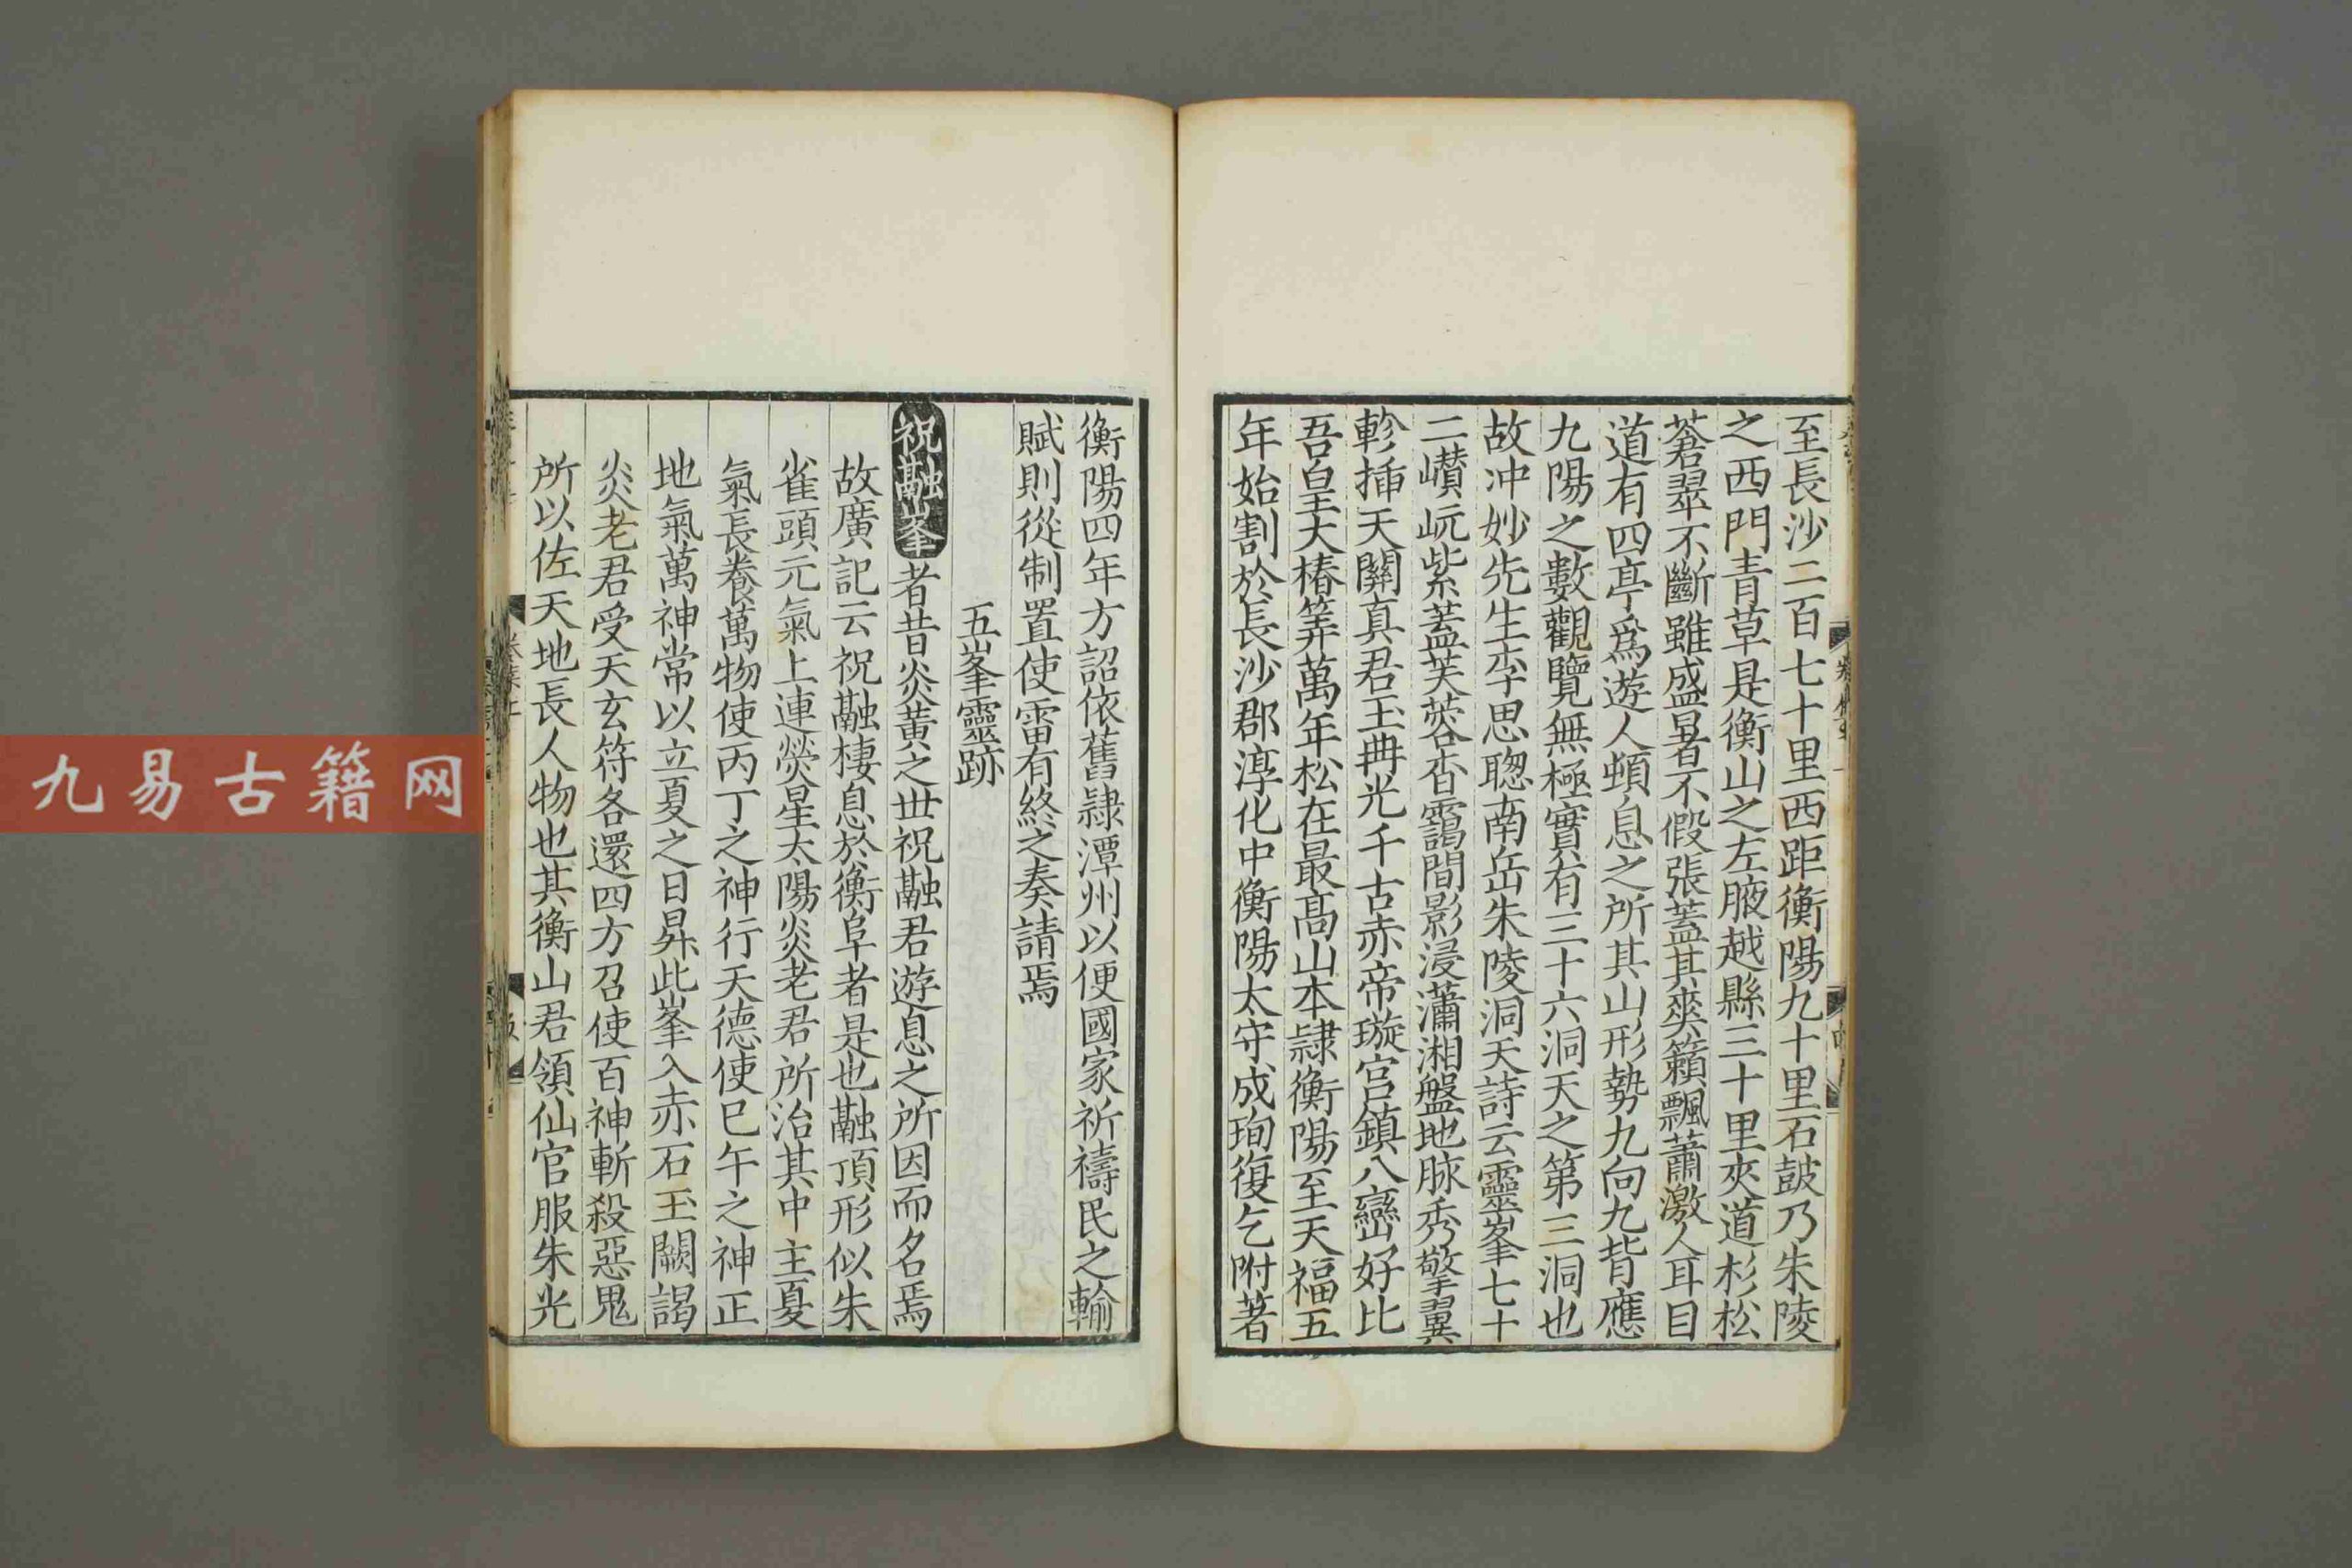 至長沙二百七十里西距衡陽九十里石皷乃朱陵
之西門青草是衡山之左腋越縣三十里夾道杉松
蒼翠不斷雖盛暑不假張蓋其爽籟飄蕭激人耳目
道有四亭爲遊人頓息之所其山形勢九向九背應
九陽之數觀覽無極實有三十六洞天之第三洞也
故冲妙先生李思聦南岳朱陵洞天詩云靈峯七十
二巑岏紫蓋芙蓉杳靄間影浸瀟湘盤地脉秀擎翼
軫揷天關真君玉冊光千古赤帝璇宮鎮八蠻好比
吾皇大椿筭萬年松在最高山本隷衡陽至天福五
年始割於長沙郡淳化中衡陽太守成珣復乞附著
衡陽四年方詔依舊隷潭州以便國家祈禱民之輸
賦則從制置使雷有終之奏請焉
五峯靈跡
祝融峯者昔炎黃之世祝融君遊息之所因而名焉
故廣記云祝融棲息於衡阜者是也融頂形似朱
雀頭元氣上連熒星太陽炎老君所治其中主夏
氣長養萬物使丙丁之神行天德使巳午之神正
地氣萬神常以立夏之日昇此峯入赤石玉闕謁
炎老君受天玄符各還四方召使百神斬殺惡鬼
所以佐天地長人物也其衡山君領仙官服朱光
九易古籍网